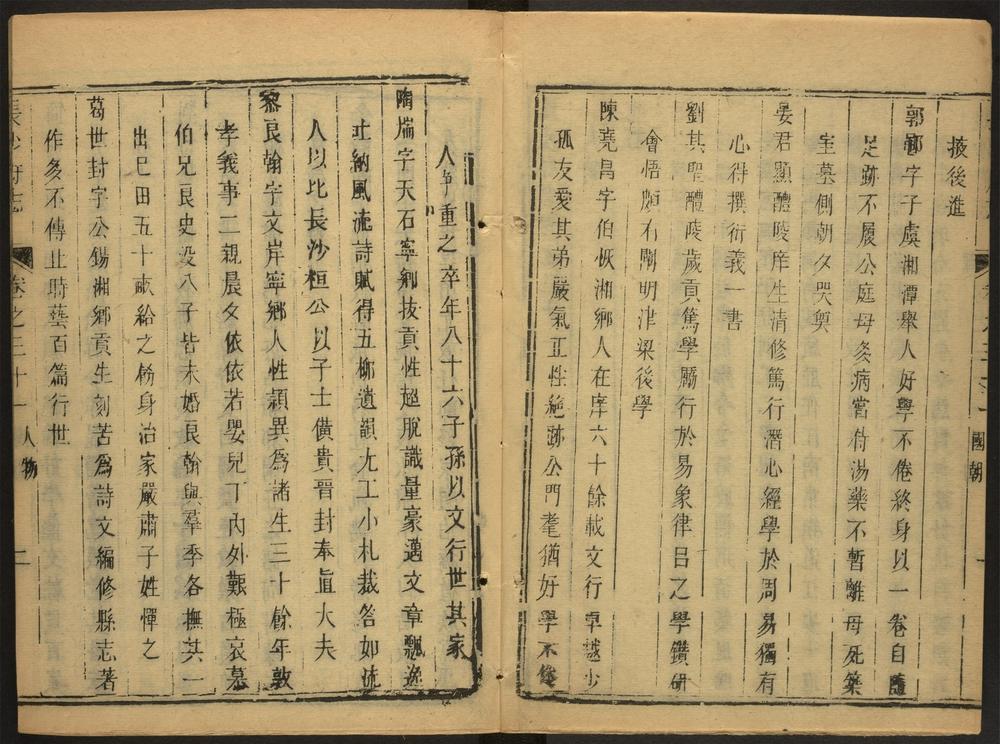 掖後進
郭字子虞湘潭舉人好學不倦終身以一卷自隨
足跡不履公庭母灸病嘗侍湯藥不暫離母死築
室墓側朝夕哭奠
晏君顯醴陵庠生清修篤行潛心經學於周易獨有
心得撰衍義一書
劉其聖醴陵歲貢篤學勵行於易象律呂之學鑽研
會悟頗有闡明津梁後學
陳堯昌字伯恢湘鄉人在庠六十餘載文行卓越少
孤友愛其弟嚴氣正性絕跡公門耄猶好學不倦
國朝
人重之卒年八十六子孫以文行世其家
陶字天石寧鄉拔貢性超脫識量豪邁文章飄逸
吐納風流詩賦得五柳遺韻尤工小札裁答如流
人以比長沙桓公以子士僙貴晉封奉直大夫
黎良翰字文岸寧鄉人性穎異為諸生三十餘年敦
孝義事二親晨夕依依若嬰兒丁內外艱極哀慕
伯兄良史歿八子皆未婚良翰與羣季各撫其一
出巳田五十畝給之飭身治家嚴肅子姓憚之
葛世封字公錫湘鄉貢生刻苦為詩文編修縣志著
作多不傳止時藝百篇行世
長沙府志 卷之三十一 人物 二